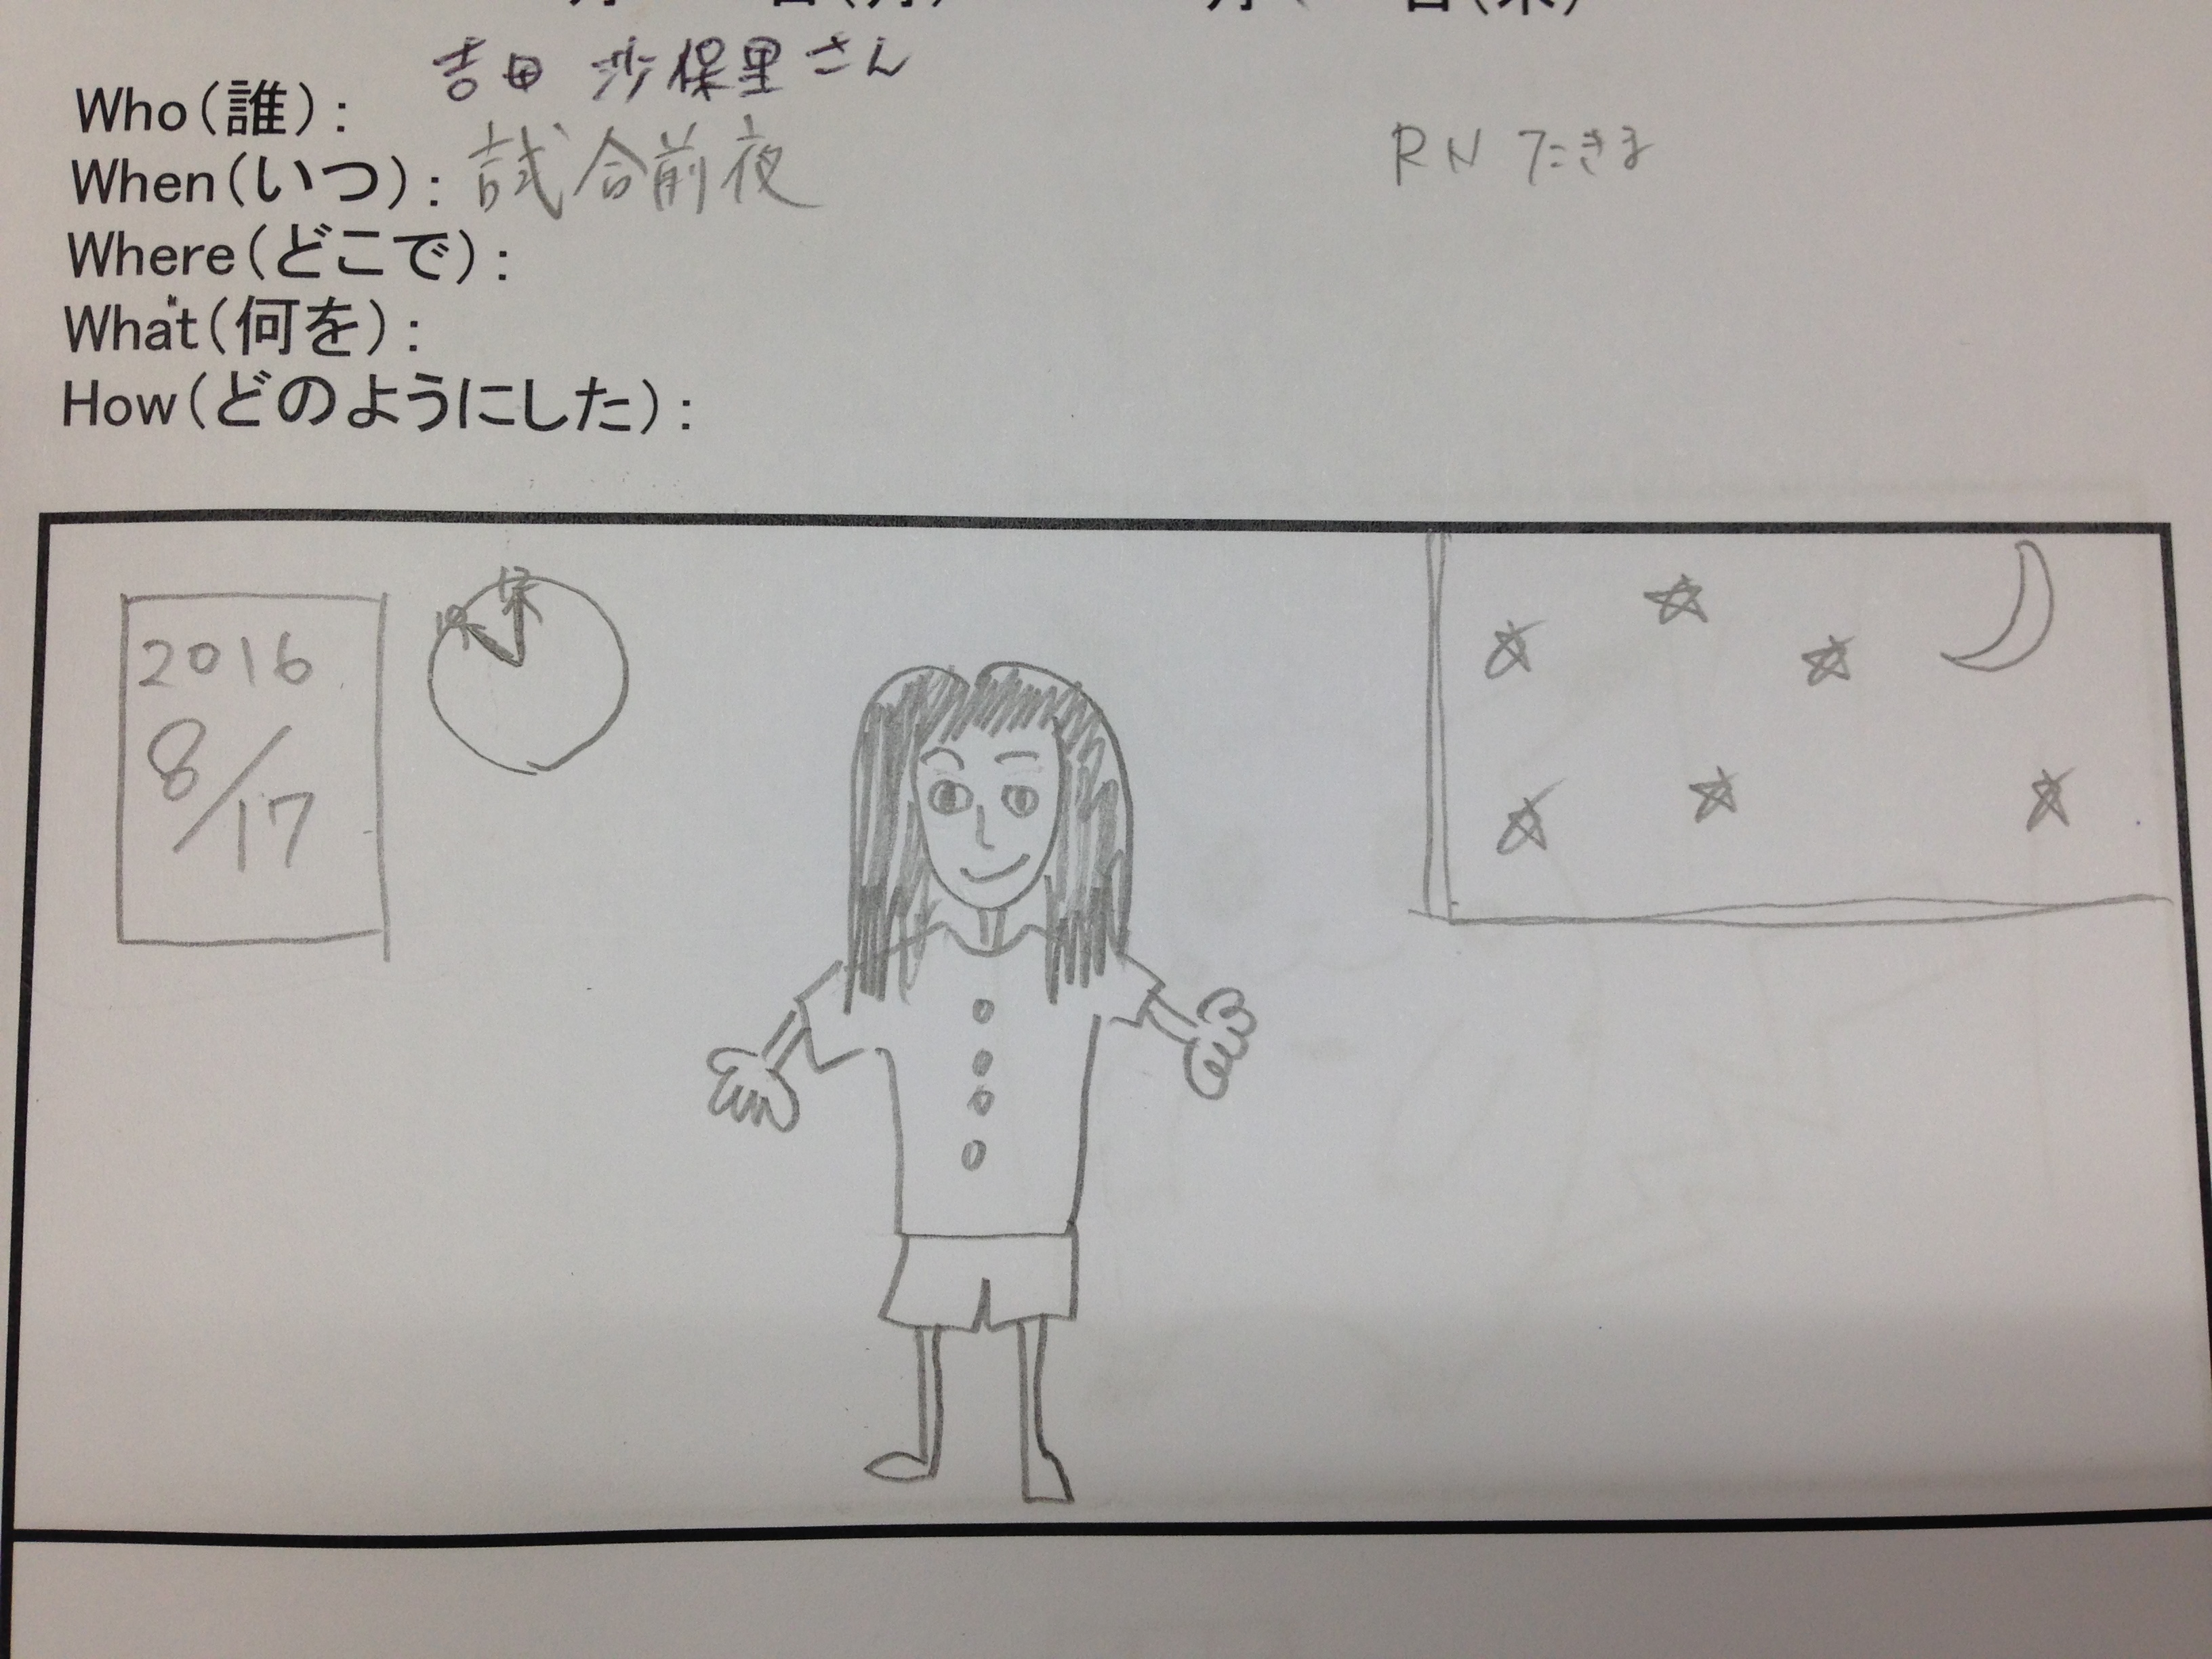 Who(誰): 吉田 沙保里さん
When(いつ): 試合前夜
RN たきま
Where(どこで):
What(何を):
How(どのようにした):
2016
8/17
12